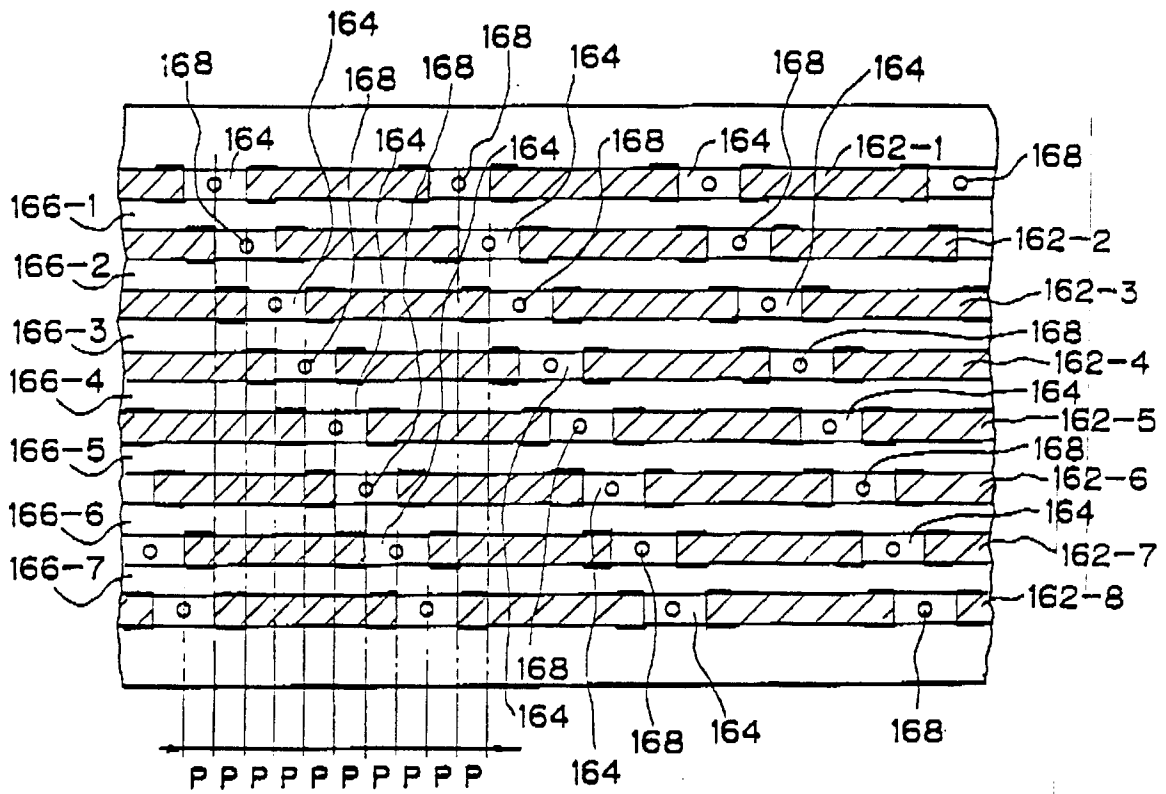 164
168
164
168
168
168
168
164
164
164
164
164
162-1
168
166-1
162-2
166-2
162-3
166-3
168
162-4
166-4
164
162-5
166-5
168
162-6
166-6
164
162-7
166-7
162-8
168
164
164
168
168
164
P P P P P P P P P P